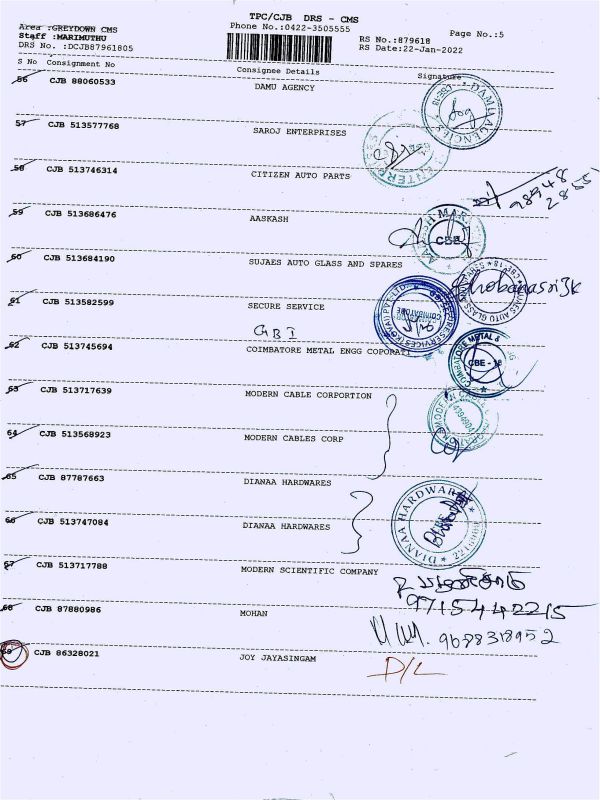 TPC/CJB DRS - CMS
Area :GREYDOWN CMS
Phone No.:0422-3505555
Page No.:5
Staff :MARIMUTHU
RS No.:879618
DRS No. :DCJB87961805
RS Date:22-Jan-2022
S No Consignment No Consignee Details Signature
56 CJB 88060533 DAMU AGENCY
DAMU AGENCIES
57 CJB 513577768 SAROJ ENTERPRISES
58 CJB 513746314 CITIZEN AUTO PARTS
98948
2855
59 CJB 513686476 AASKASH
CBE
60 CJB 513684190 SUJAES AUTO GLASS AND SPARES
61 CJB 513582599 SECURE SERVICE
COIMBATORE
GBI
62 CJB 513745694 COIMBATORE METAL ENGG COPORATI
COIMBATORE METAL &
CBE - 18
63 CJB 513717639 MODERN CABLE CORPORTION
64 CJB 513568923 MODERN CABLES CORP
65 CJB 87787663 DIANAA HARDWARES
DIANAA HARDWARES
66 CJB 513747084 DIANAA HARDWARES
67 CJB 513717788 MODERN SCIENTIFIC COMPANY
9715442215
68 CJB 87880986 MOHAN
9688318952
69 CJB 86328021 JOY JAYASINGAM
D/L